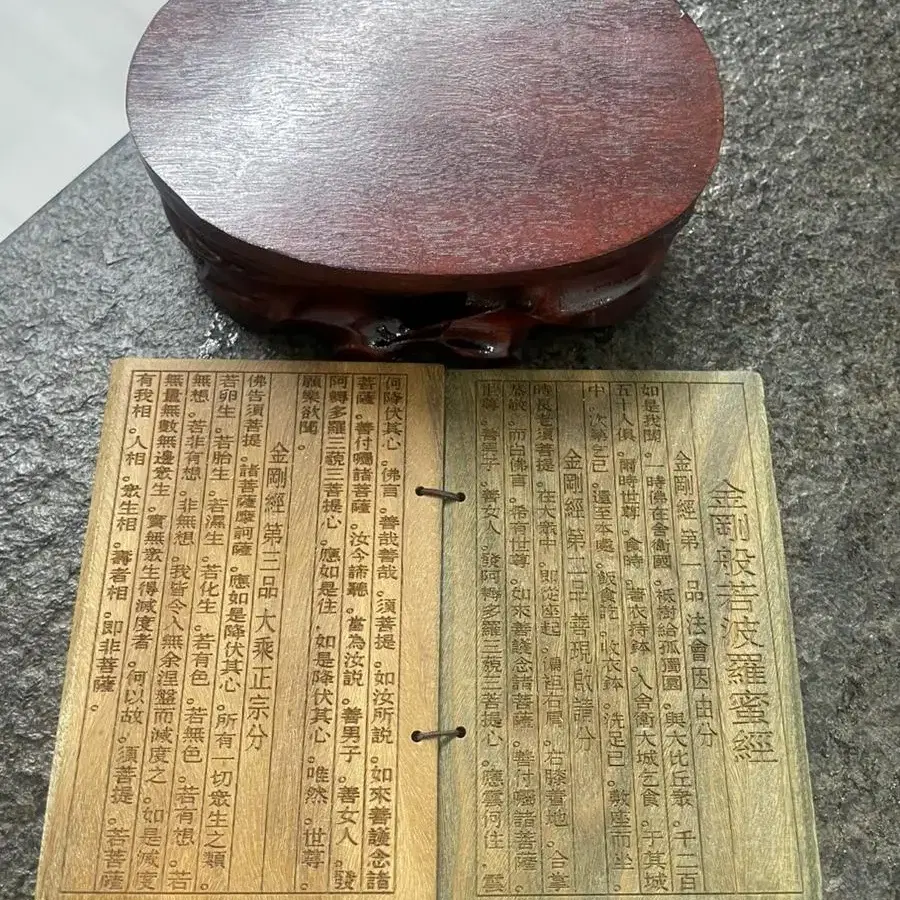 金剛般若波羅蜜經
金剛經 第一品 法會因由分
如是我聞。一時佛在舍衛國。祇樹給孤獨園。與大比丘眾。千二百
五十人俱。爾時世尊。食時。著衣持鉢。入舍衛大城乞食。于其城
中。次第乞已。還至本處。飯食訖。收衣鉢。洗足已。敷座而坐。
金剛經第二品 善現啟請分
時長老須菩提。在大眾中。即從座起。偏袒右肩。右膝着地。合掌
恭敬。而白佛言。希有世尊。如來善護念諸菩薩。善付囑諸菩薩。
世尊。善男子。善女人。發阿耨多羅三藐三菩提心。應雲何住。雲
何降伏其心。佛言。善哉善哉。須菩提。如汝所說。如來善護念諸
菩薩。善付囑諸菩薩。汝今諦聽。當為汝說。善男子。善女人。發
阿耨多羅三藐三菩提心。應如是住。如是降伏其心。唯然。世尊。
願樂欲聞。
金剛經 第三品 大乘正宗分
佛告須菩提。諸菩薩摩訶薩。應如是降伏其心。所有一切眾生之類。
若卵生。若胎生。若濕生。若化生。若有色。若無色。若有想。若
無想。若非有想。非無想。我皆令入無余涅盤而減度之。如是減度
無量無數無邊眾生。實無眾生得減度者。何以故。須菩提。若菩薩
有我相。人相。眾生相。壽者相。即非菩薩。